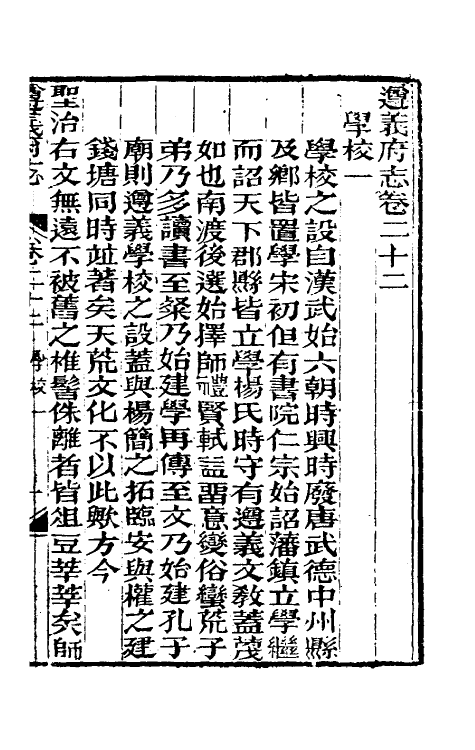 遵義府志卷二十二
學校一
學校之設自漢武始六朝時興時廢唐武德中州縣
及鄉皆置學宋初但有書院仁宗始詔藩鎮立學繼
而詔天下郡縣皆立學楊氏時守有遵義文敎蓋蔑
如也南渡後選始擇師禮賢軾益畱意變俗蠻荒子
弟乃多讀書至粲乃始建學再傳至文乃始建孔子
廟則遵義學校之設蓋與楊簡之拓臨安與權之建
錢塘同時並著矣天荒文化不以此歟方今
聖治右文無遠不被舊之椎髻侏離者皆俎豆莘莘矣師
遵義府志 卷二十二 學校一 一